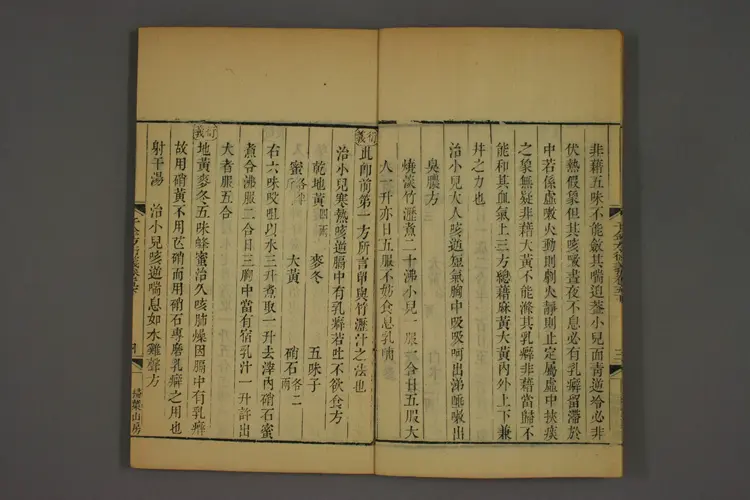 非藉五味不能斂其喘迫蓋小兒面青逆冷必非
伏熱假象但其咳嗽晝夜不息必有乳癖留滯於
中若係虛嗽火動則劇火靜則止定屬虛中挾痰
之象無疑非藉大黃不能滌其乳癖非藉當歸不
能和其血氣上三方總藉麻黃大黃內外上下兼
井之力也
治小兒大人咳逆短氣胸中吸吸呵出涕唾嗽出
臭膿方
燒淡竹瀝煮二十沸小兒一服一合日五服大
人一升亦日五服不妨食息乳哺
衍義 此卽前第一方所言單與竹瀝汁之法也
治小兒寒熱咳逆膈中有乳癖若吐不欲食方
乾地黃四兩 麥冬 五味子
蜜各半升 大黃 硝石各二兩
右六味㕮咀以水三升煮取一升去滓內硝石蜜
煮合沸服二合日三胸中當有宿乳汁一升許出
大者服五合
衍義 地黃麥冬五味蜂蜜治久咳肺燥因膈中有乳癖
故用硝黃不用芒硝而用硝石專磨乳癖之用也
射干湯 治小兒咳逆喘息如水雞聲方
掃葉山房